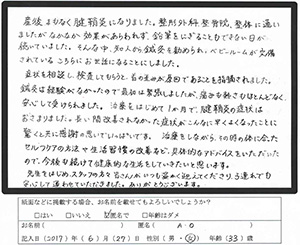 産後まもなく腱鞘炎になりました。整形外科、整骨院、整体に通い
ましたがなかなか効果があらわれず、鉛筆をにぎることもできない日が
続いていました。そんな中、知人から鍼灸を勧められ、ベビールームが完備
されているこちらにお世話になることにしました。
症状を相談し、検査してもらうと、首の歪みが原因であることを指摘されました。
鍼灸は経験がなかったので最初は緊張しましたが、痛さも熱さもほとんどなく
安心して受けられました。治療をはじめて1か月で、腱鞘炎の症状は
おさまりました。長い間改善されなかった症状がこんなに早くよくなったことに
驚くと共に感謝の思いでいっぱいです。治療をしながら、その時の体に合った
セルフケアの方法や生活習慣の改善など、具体的なアドバイスをいただいた
ので、今後も続けて健康的な生活をしていきたいと思います。
先生をはじめ、スタッフの方々皆さんがいつも温かく迎えてくださり、5連れでも
安心して通わせていただきました。ありがとうございます。
紙面などに掲載する場合、お名前を載せてもよろしいでしょうか?
□はい □いいえ ☑匿名で □年齢はダメ
お名前( ) 匿名( A・O )
記入日(2017)年(6)月(27)日 性別(男・女) 年齢(33)歳